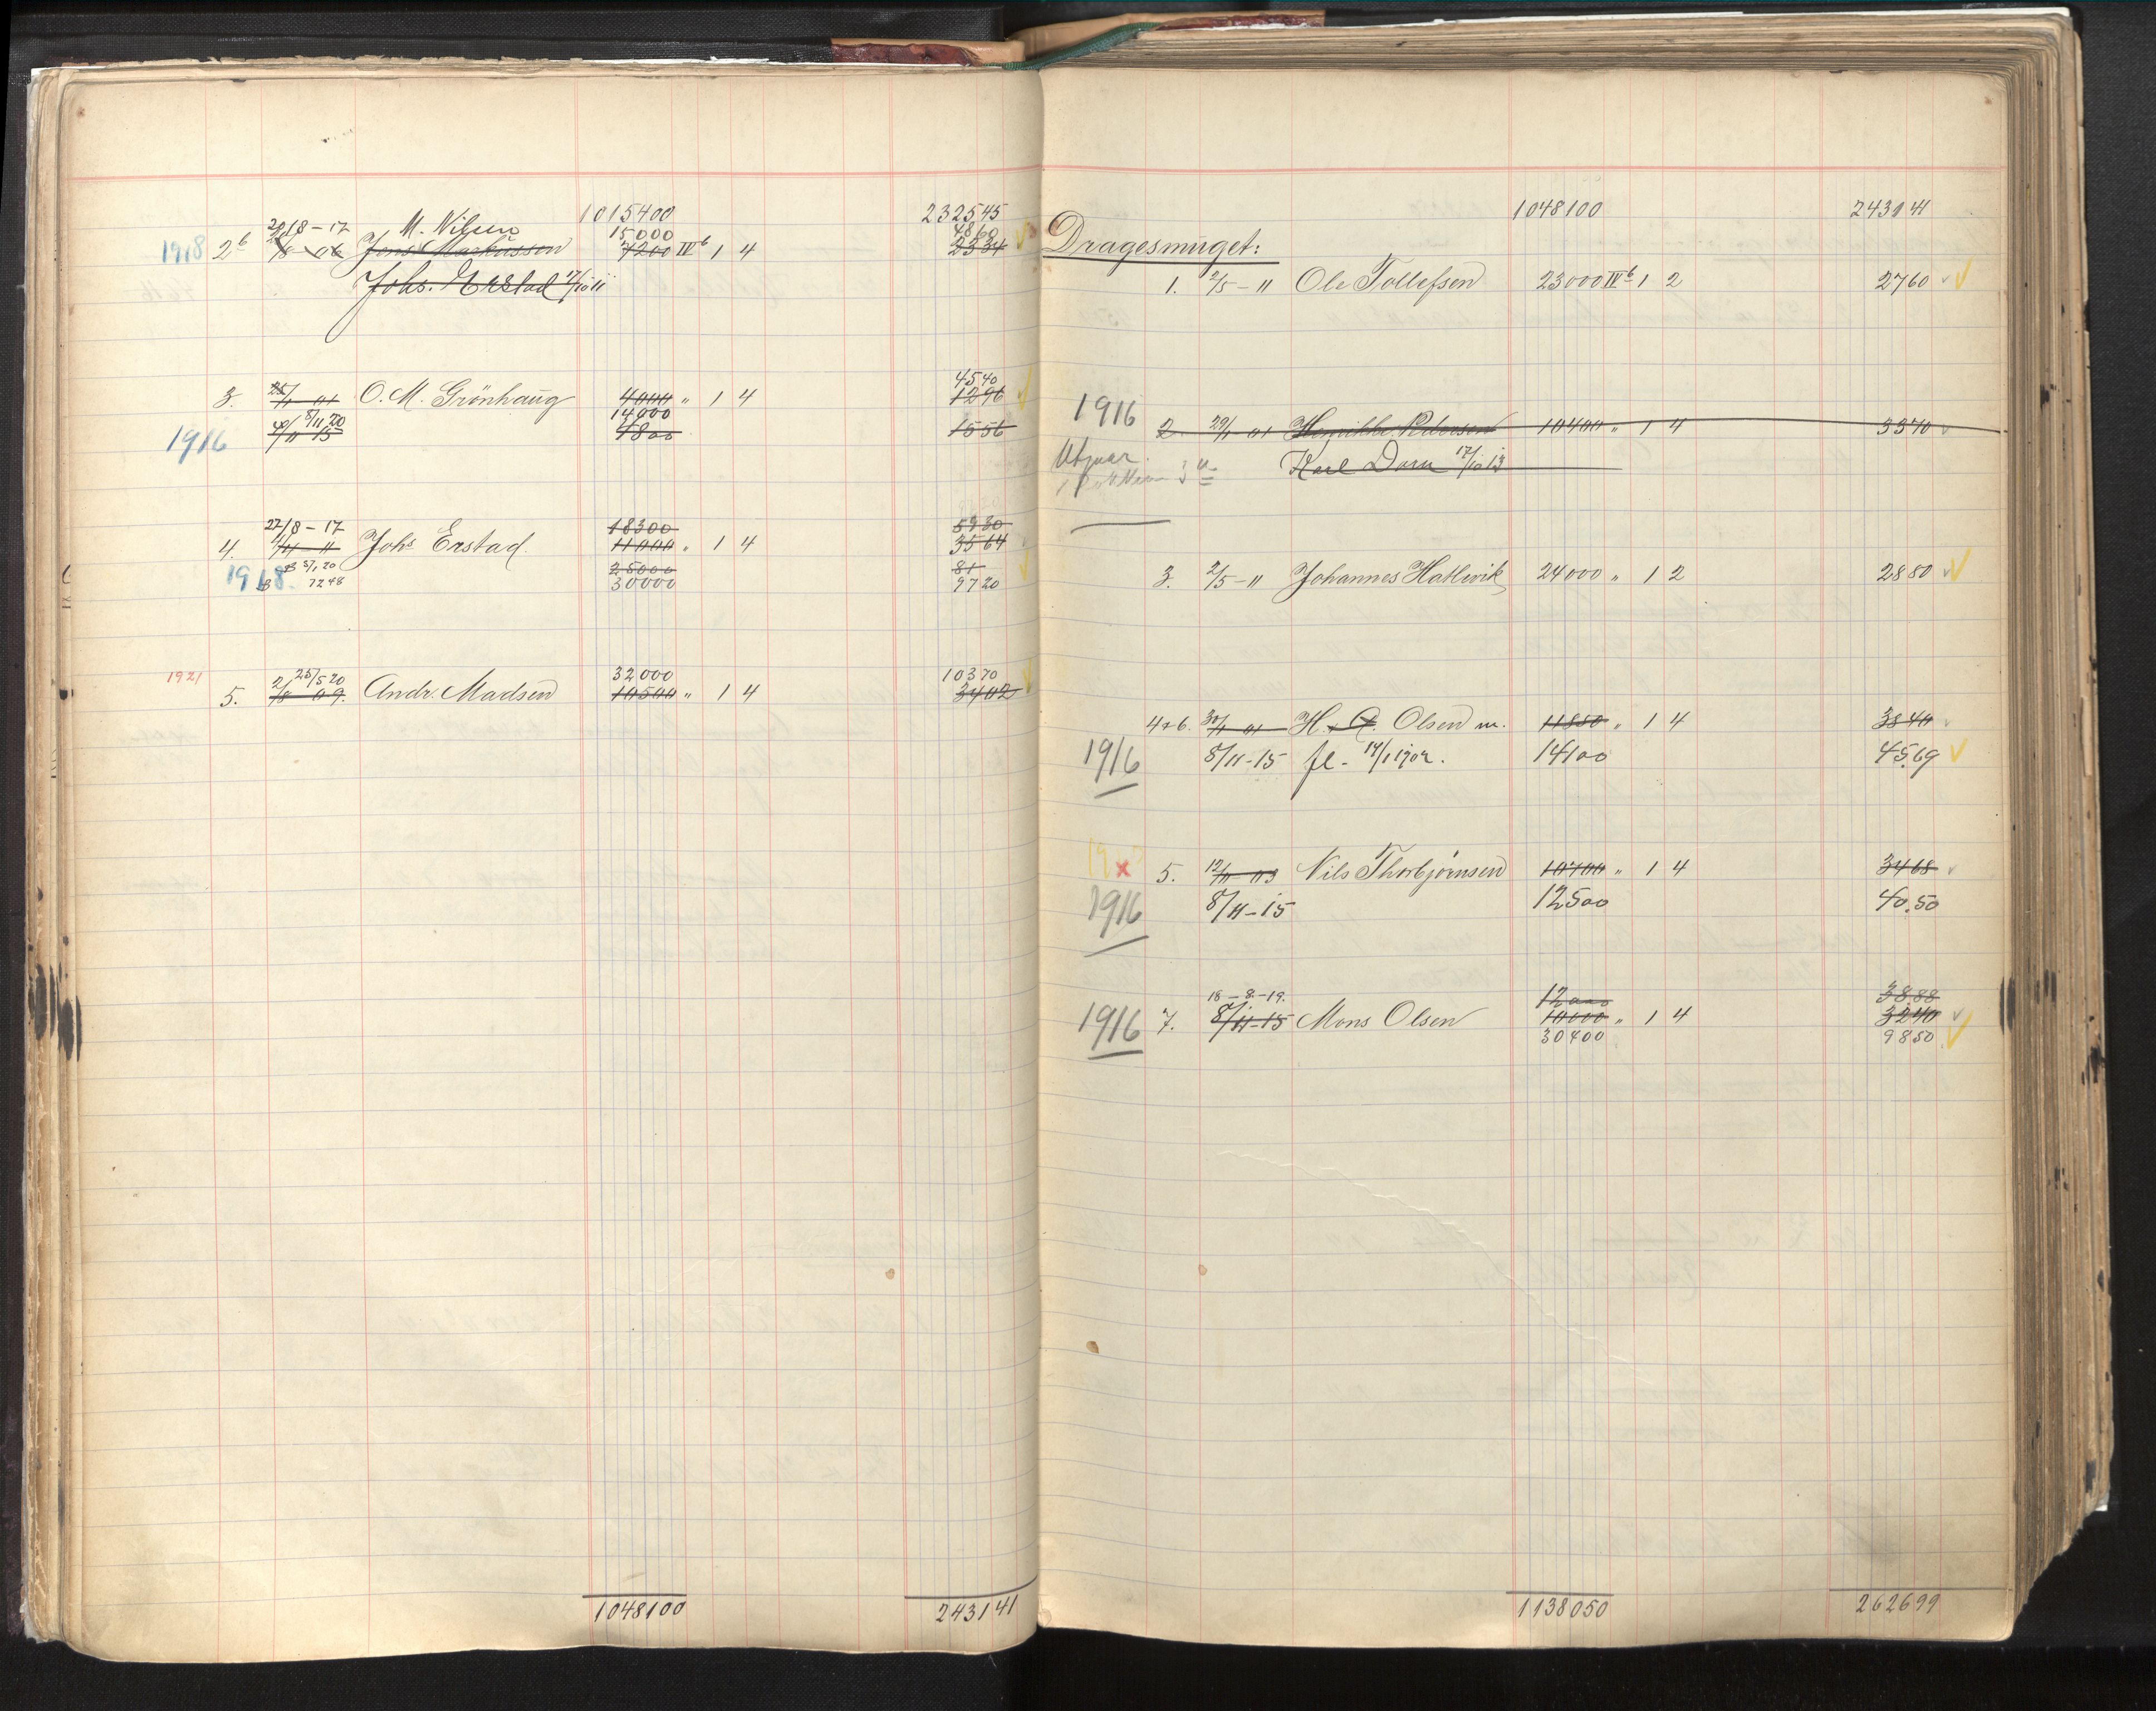 1015400 232545
20/8-17 M. Nilsen 15000 4860
1918 2b 2/8 06 Jens Markussen 7200 IVb 1 4 2334
Johs. Erstad 17/10 11
4540
3. 25/11 01 O. M. Grönhaug 4000 " 1 4 1296
8/11 20 14000
1916 8/11 15 4800 1556
27/8-17 18300 5930
4. 4/4-11 Johs Erstad. 11000 " 1 4 3564
B 5/1 20 25000 81
1918 B 7248 30000 9720
1921 25/5 20 32000 10370
5. 2/8 09. Andr. Madsen 10500 " 1 4 3402
1048100 24314 1
1048100 24314 1
Dragesmuget:
1. 2/5-11 Ole Tollefsen 23000 IVb 1 2 2760
1916
2. 29/11-01 Henrikke Pedersen 10400 " 1 4 3370
Utgaar. Karl Dorn 17/10 13
3. 2/5-11 Johannes Hatlevik 24000 " 1 2 2880
4&6. 30/11-01 H. A. Olsen m. 11850 " 1 4 3840
1916 8/11-15 fl. 14/1 1902. 14100 45,69
5. 12/11-03 Nils Thorbjørnsen 10700 " 1 4 3468
1916 8/11-15 12500 40.50
18-8-19. 12000 38.88
1916 7. 8/11-15 Mons Olsen 10000 " 1 4 3240
30400 9850
1138050 262699